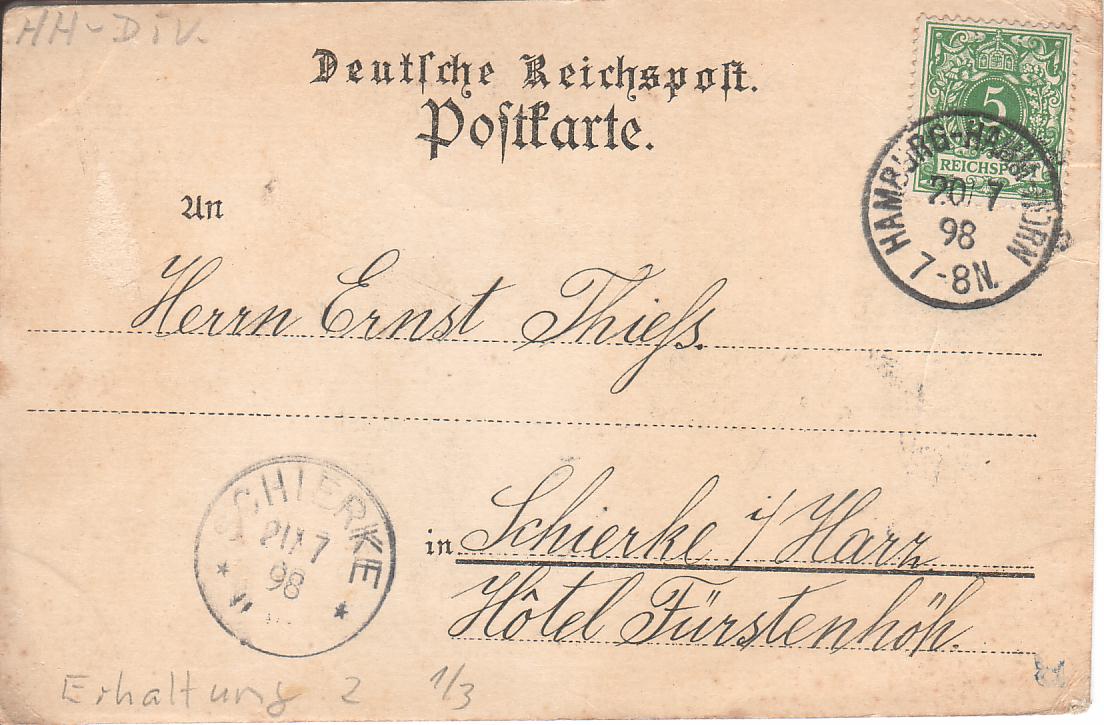 HH-Div.
Deutsche Reichspost.
Postkarte.
5
REICHSPOST
HAMBURG-HAMM & HORN
20/7
98
7-8N.
An
Herrn Ernst Thiess.
SCHIERKE
21/7
98
in Schierke i/Harz
Hôtel Fürstenhöh.
Erhaltung 2 1/3